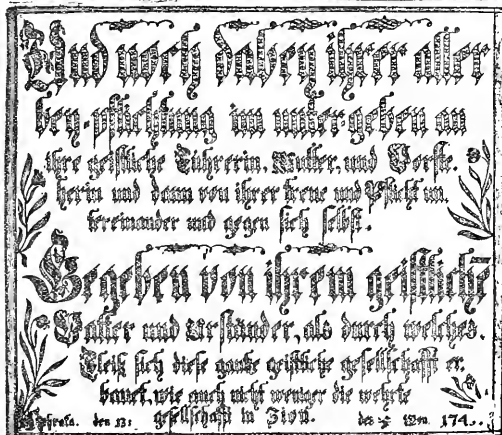 Und noch dabey ihrer aller
bey-pflichtung im unter-geben an
Ihre geistliche Führerin, Mutter, und Vorste,
herin und dann von ihrer treue und Pflicht un,
tereinander und gegen sich selbst.
Gegeben von ihrem geistliche
Vatter und Urständer, als durch welches,
Fleiß sich diese gantze geistliche gesellschafft er,
bauet, wie auch nicht weniger die wehrte
gesellschafft in Zion.
Ephrata. den 13: des 174